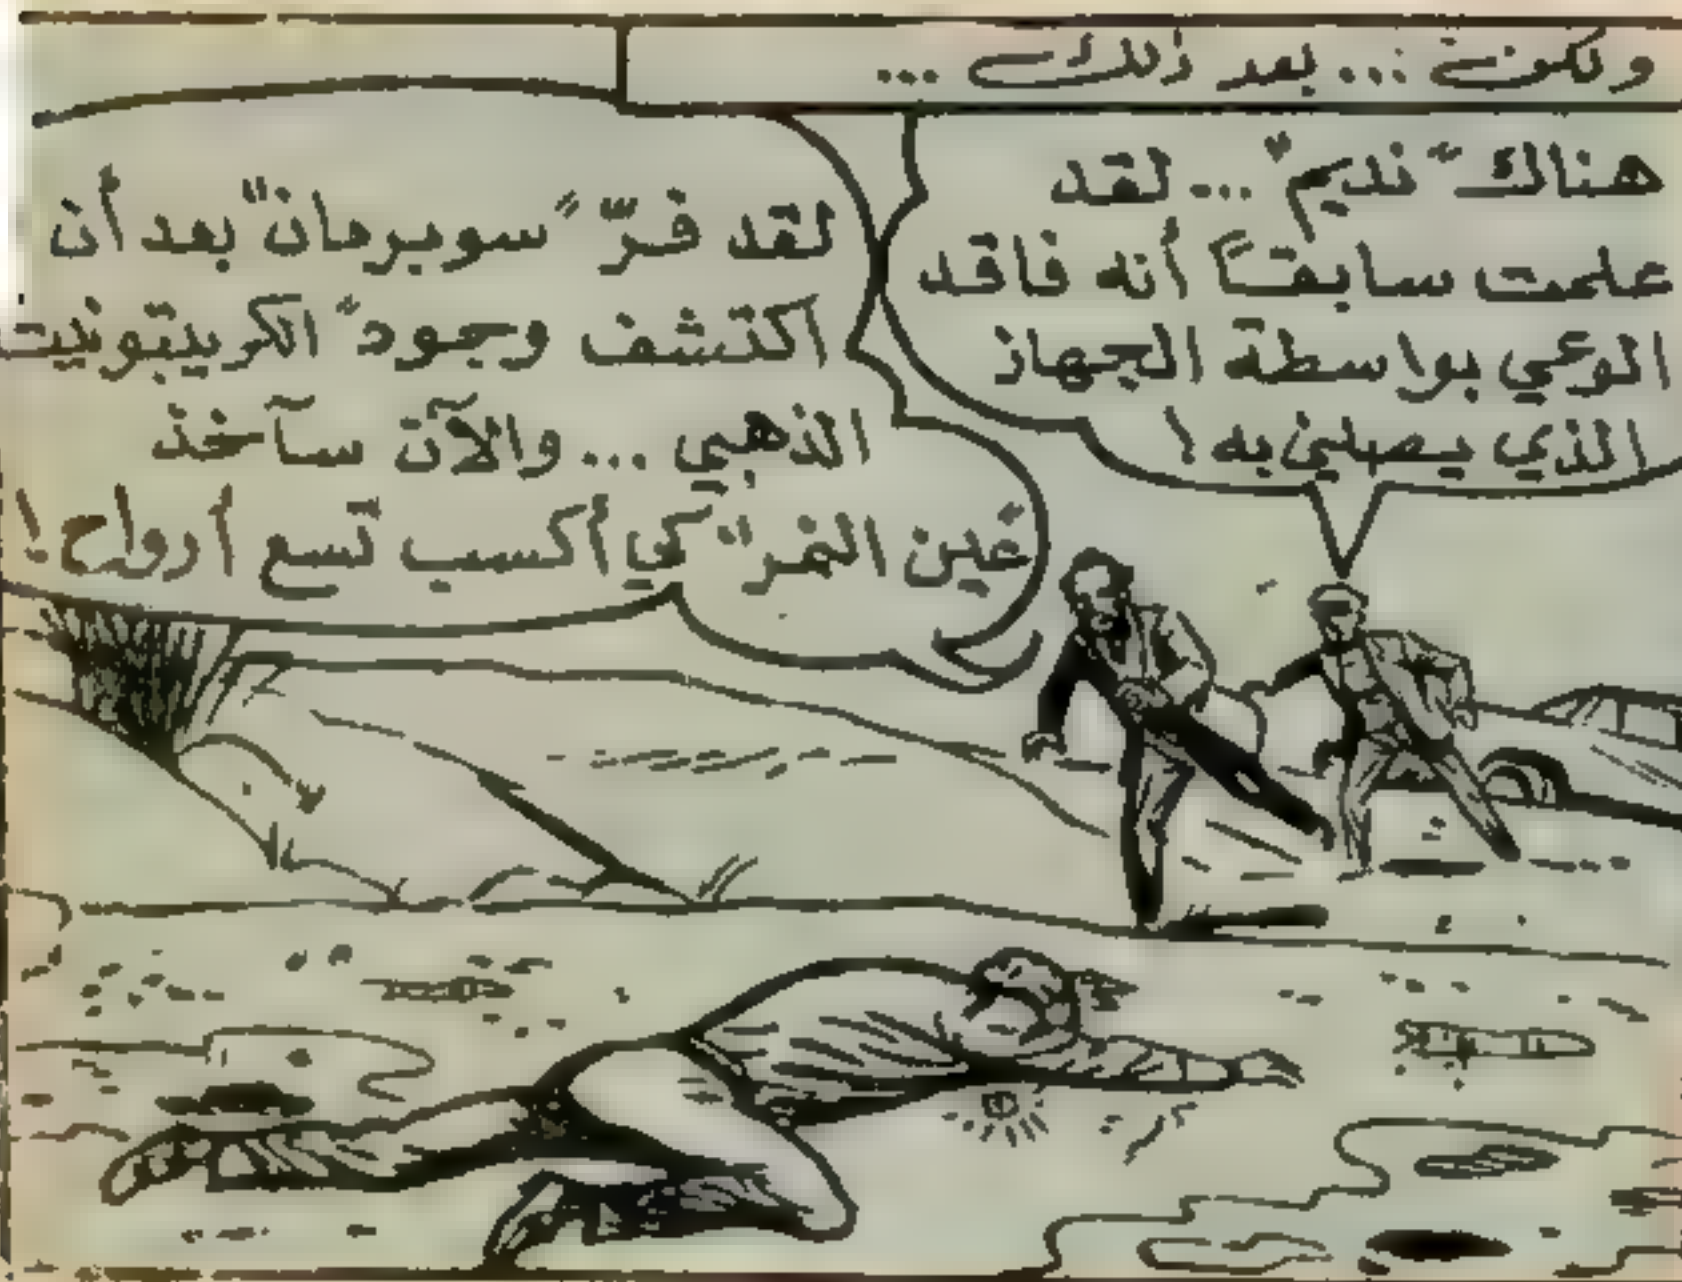 ولكن ... بعد ذلك ...
هناك "نديم" ... لقد
علمت سابقاً أنه فاقد
الوعي بواسطة الجهاز
الذي يصلني به !
لقد فرّ "سوبرمان" بعد أن
اكتشف وجود "الكريبتونيت
الذهبي ... والآن سآخذ
عين النمر" كي أكسب تسع أرواح !